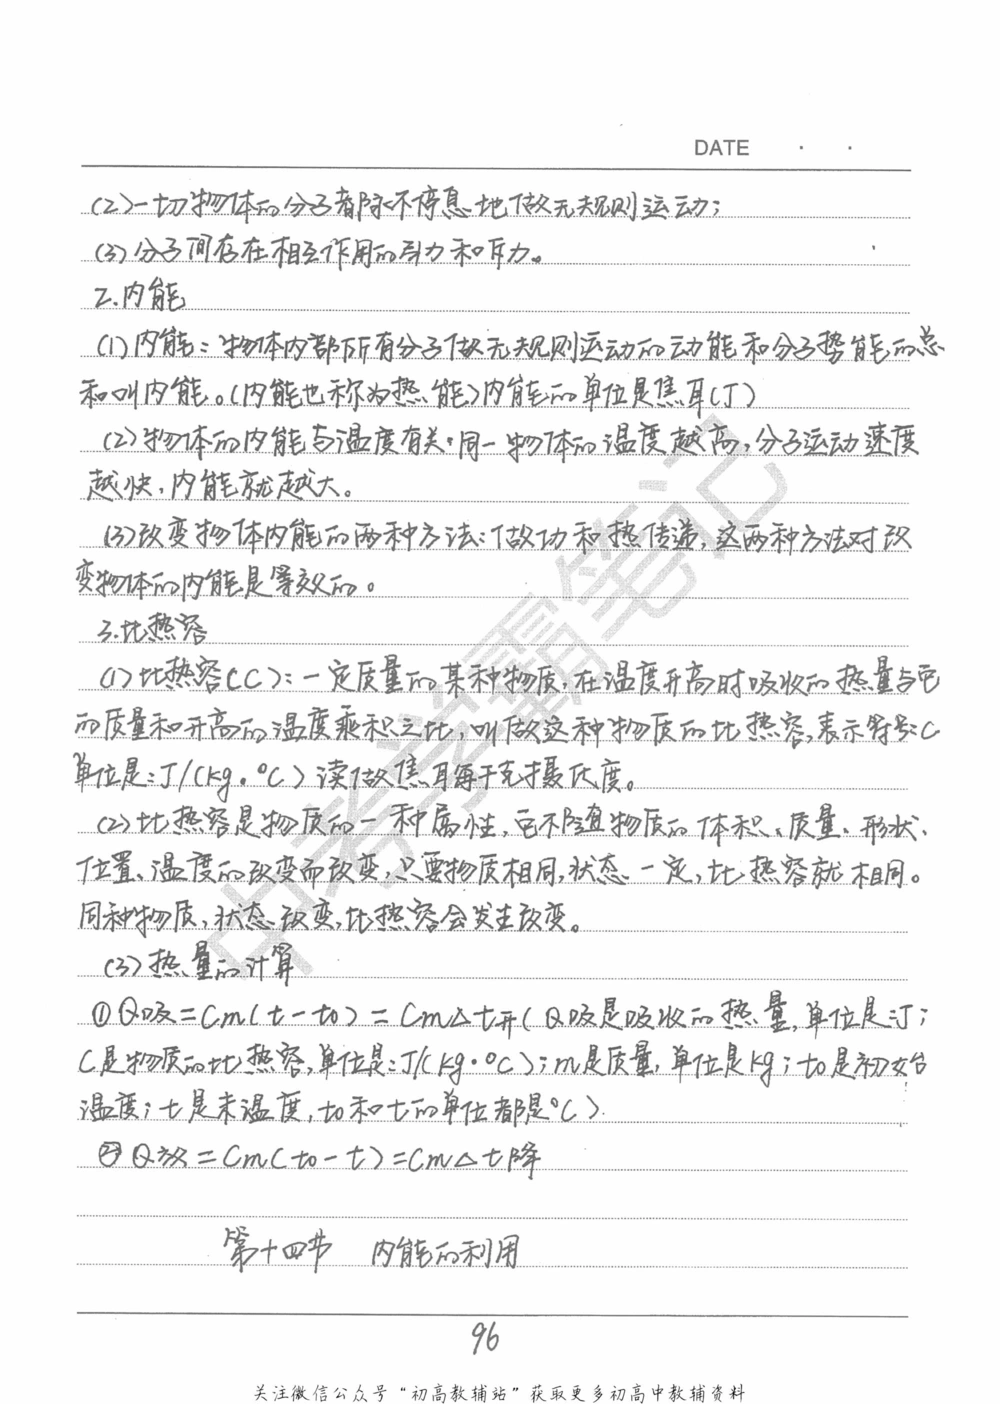 DATE · ·
(2)一切物体的分子都在不停息地做无规则运动；
(3)分子间存在相互作用的引力和斥力。
2.内能
(1)内能：物体内部所有分子做无规则运动的动能和分子势能的总
和叫内能。(内能也称为热能)内能的单位是焦耳(J)
(2)物体的内能与温度有关.同一物体的温度越高，分子运动速度
越快，内能就越大。
(3)改变物体内能的两种方法：做功和热传递，这两种方法对改
变物体的内能是等效的。
3.比热容
(1)比热容(C)：一定质量的某种物质，在温度升高时吸收的热量与它
的质量和升高的温度乘积之比，叫做这种物质的比热容，表示符号：C
单位是：J/(kg·℃) 读做焦耳每千克摄氏度。
(2)比热容是物质的一种属性，它不随物质的体积、质量、形状、
位置、温度的改变而改变，只要物质相同，状态一定，比热容就相同。
同种物质，状态改变，比热容会发生改变。
(3)热量的计算
①Q吸=Cm(t-t0)=Cm△t升(Q吸是吸收的热量，单位是：J；
C是物质的比热容，单位是：J/(kg·℃)；m是质量，单位是kg；t0是初始
温度；t是末温度，t0和t的单位都是℃).
②Q放=Cm(t0-t)=Cm△t降
第十四节 内能的利用
96
关注微信公众号“初高教辅站”获取更多初高中教辅资料
中考学霸笔记